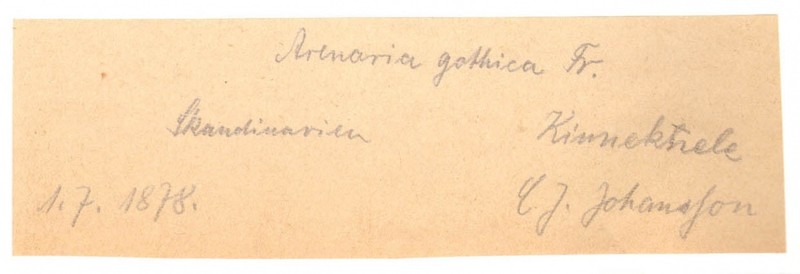 Arenaria gothica Fr.
Skandinavien Kinnekhele
1.7. 1878. C J. Johansson